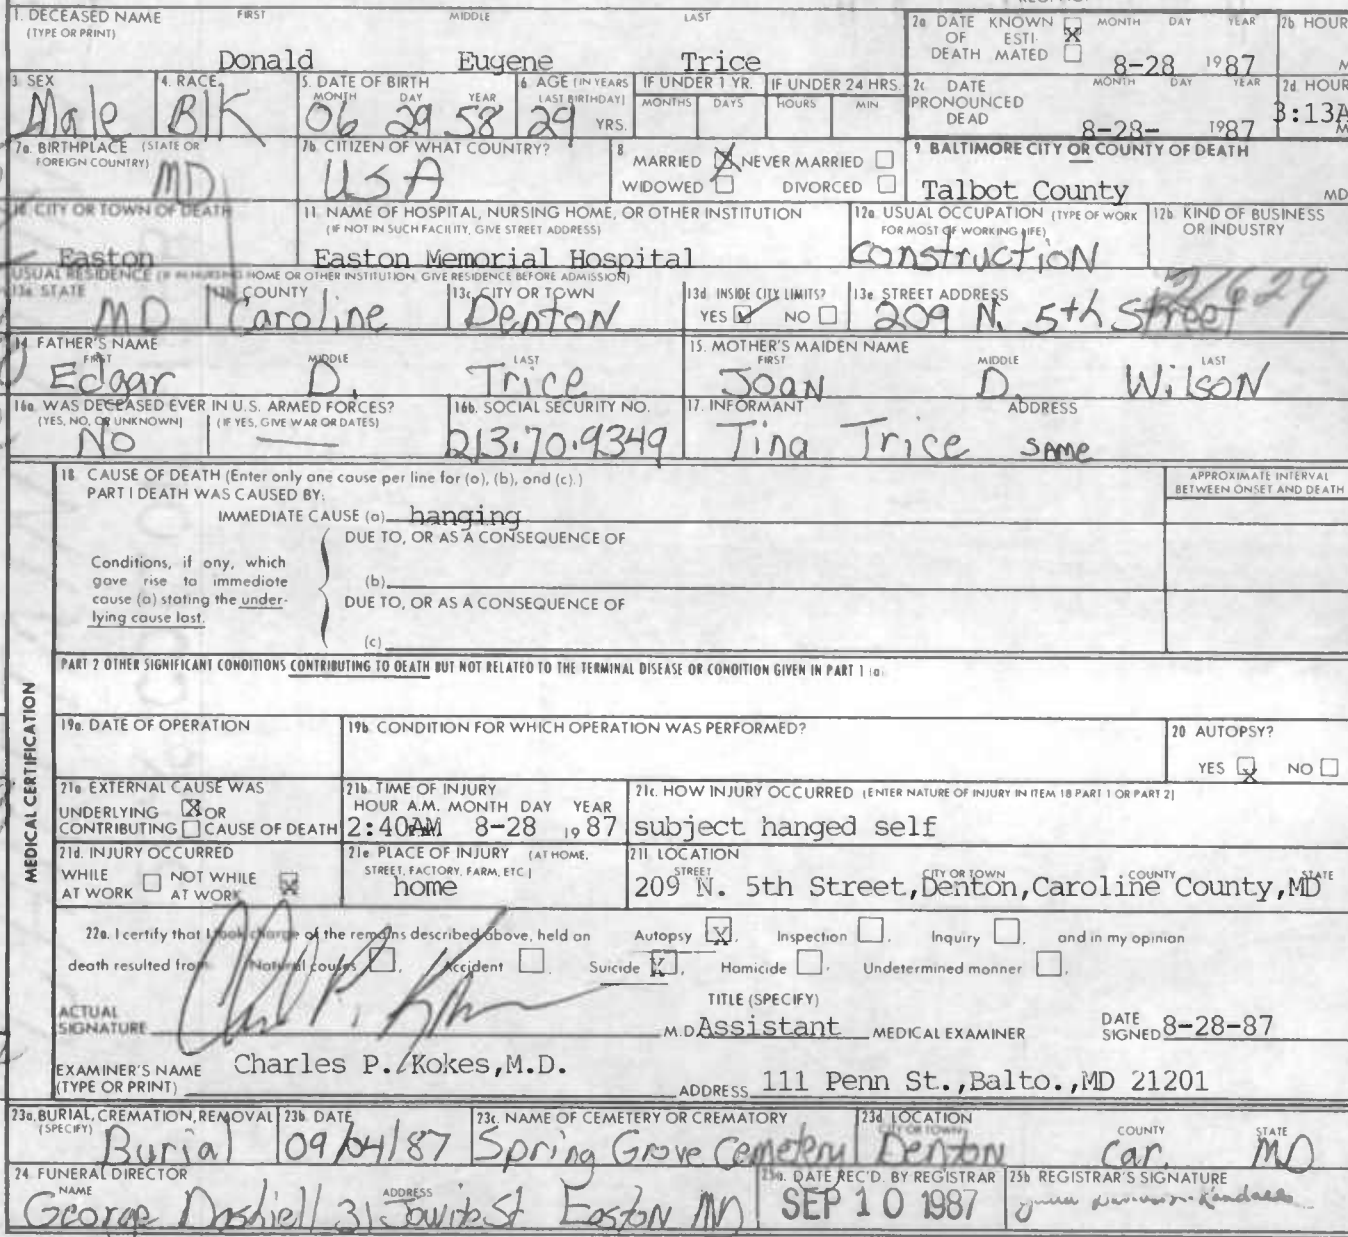 1. DECEASED NAME FIRST MIDDLE LAST
(TYPE OR PRINT)
Donald Eugene Trice
2a DATE KNOWN MONTH DAY YEAR
OF ESTI- X
DEATH MATED 8-28 1987
2b HOUR
M
3 SEX
Male
4. RACE
Blk
5. DATE OF BIRTH
MONTH DAY YEAR
06 29 58
6 AGE (IN YEARS
LAST BIRTHDAY)
29 YRS.
IF UNDER 1 YR.
MONTHS DAYS
IF UNDER 24 HRS.
HOURS MIN
2c DATE MONTH DAY YEAR
PRONOUNCED
DEAD 8-28- 1987
2d HOUR
3:13A
M
7a. BIRTHPLACE (STATE OR
FOREIGN COUNTRY)
MD
7b. CITIZEN OF WHAT COUNTRY?
USA
8
MARRIED X NEVER MARRIED
WIDOWED DIVORCED
9 BALTIMORE CITY OR COUNTY OF DEATH
Talbot County MD
10 CITY OR TOWN OF DEATH
Easton
11 NAME OF HOSPITAL, NURSING HOME, OR OTHER INSTITUTION
(IF NOT IN SUCH FACILITY, GIVE STREET ADDRESS)
Easton Memorial Hospital
12a USUAL OCCUPATION (TYPE OF WORK
FOR MOST OF WORKING LIFE)
construction
12b KIND OF BUSINESS
OR INDUSTRY
USUAL RESIDENCE (IF IN NURSING HOME OR OTHER INSTITUTION GIVE RESIDENCE BEFORE ADMISSION)
13a STATE
MD
COUNTY
Caroline
13c CITY OR TOWN
Denton
13d INSIDE CITY LIMITS?
YES ✓ NO
13e STREET ADDRESS
209 N. 5th Street
14 FATHER'S NAME
FIRST MIDDLE LAST
Edgar D. Trice
15. MOTHER'S MAIDEN NAME
FIRST MIDDLE LAST
Joan D. Wilson
16a WAS DECEASED EVER IN U.S. ARMED FORCES?
(YES, NO, OR UNKNOWN) (IF YES, GIVE WAR OR DATES)
No
16b. SOCIAL SECURITY NO.
213.70.9349
17. INFORMANT ADDRESS
Tina Trice same
18 CAUSE OF DEATH (Enter only one cause per line for (a), (b), and (c).)
PART I DEATH WAS CAUSED BY:
APPROXIMATE INTERVAL
BETWEEN ONSET AND DEATH
IMMEDIATE CAUSE (a) hanging
DUE TO, OR AS A CONSEQUENCE OF
Conditions, if any, which
gave rise to immediate
cause (a) stating the under-
lying cause last.
(b)
DUE TO, OR AS A CONSEQUENCE OF
(c)
PART 2 OTHER SIGNIFICANT CONDITIONS CONTRIBUTING TO DEATH BUT NOT RELATED TO THE TERMINAL DISEASE OR CONDITION GIVEN IN PART 1 (a)
MEDICAL CERTIFICATION
19a. DATE OF OPERATION
19b CONDITION FOR WHICH OPERATION WAS PERFORMED?
20 AUTOPSY?
YES X NO
21a EXTERNAL CAUSE WAS
UNDERLYING X OR
CONTRIBUTING CAUSE OF DEATH
21b TIME OF INJURY
HOUR A.M. MONTH DAY YEAR
2:40AM 8-28 1987
21c. HOW INJURY OCCURRED (ENTER NATURE OF INJURY IN ITEM 18 PART 1 OR PART 2)
subject hanged self
21d. INJURY OCCURRED
WHILE NOT WHILE
AT WORK AT WORK X
21e PLACE OF INJURY (AT HOME,
STREET, FACTORY, FARM, ETC)
home
21f LOCATION
STREET CITY OR TOWN COUNTY STATE
209 N. 5th Street, Denton, Caroline County, MD
22a. I certify that I took charge of the remains described above, held an Autopsy X, Inspection , Inquiry , and in my opinion
death resulted from Natural causes , Accident , Suicide X, Homicide , Undetermined manner .
ACTUAL
SIGNATURE
M.D.
TITLE (SPECIFY)
Assistant MEDICAL EXAMINER
DATE
SIGNED 8-28-87
EXAMINER'S NAME
(TYPE OR PRINT) Charles P. Kokes, M.D.
ADDRESS 111 Penn St., Balto., MD 21201
23a. BURIAL, CREMATION, REMOVAL
(SPECIFY)
Burial
23b. DATE
09/04/87
23c. NAME OF CEMETERY OR CREMATORY
Spring Grove Cemetery
23d LOCATION
CITY OR TOWN COUNTY STATE
Denton Car. MD
24 FUNERAL DIRECTOR
NAME ADDRESS
George Dashiell 31 St Easton MD
25a. DATE REC'D. BY REGISTRAR
SEP 10 1987
25b REGISTRAR'S SIGNATURE